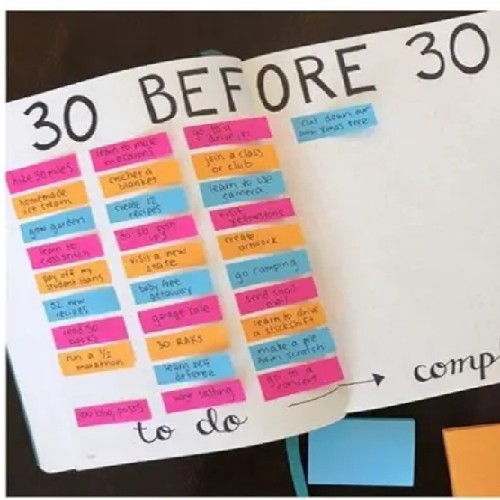 30 BEFORE 30
hike 30 miles
homemade
ice cream
grow garden
learn to
cross stitch
pay off my
student loans
52 new
recipes
read 30
books
run a 1/2
marathon
learn to make
macarons
crochet a
blanket
create 12
recipes
do 50 push
ups
visit a new
state
baby free
getaway
garage sale
30 RAKs
learn self
defense
go to a
drive in
join a class
or club
learn to use
camera
visit
Yellowstone
create
artwork
go camping
send snail
mail
learn to drive
a stick shift
make a pie
from scratch
go to a
concert
cut down our
own xmas tree
to do
comp